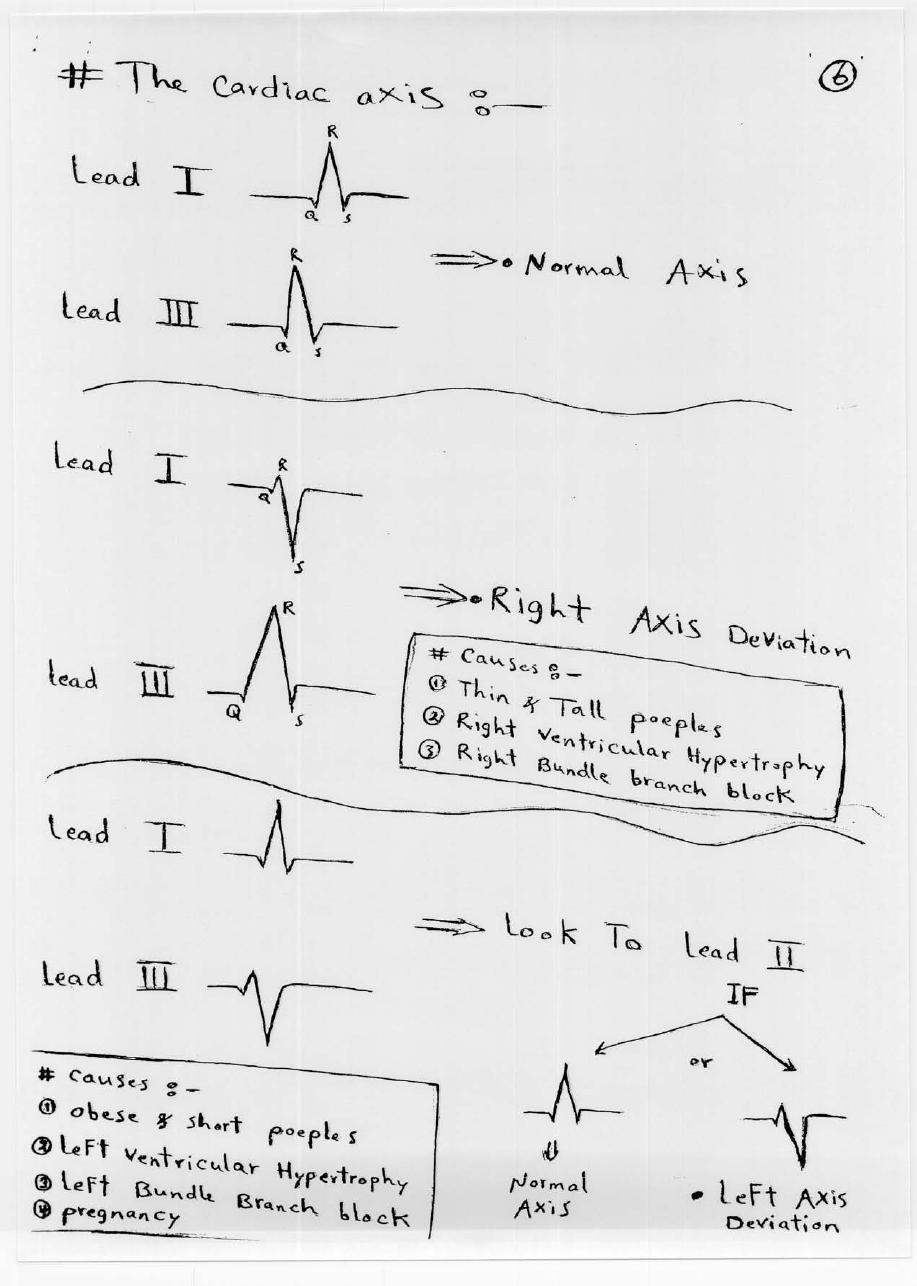 # The Cardiac axis :—
6
R
Lead I
Q S
R
⇒ • Normal Axis
Lead III
Q S
Lead I
R
Q
S
⇒ • Right Axis Deviation
R
# Causes :-
Lead III
① Thin & Tall poeples
Q S
② Right Ventricular Hypertrophy
③ Right Bundle branch block
Lead I
⇒ Look To Lead II
Lead III
IF
or
# Causes :-
① obese & short poeples
② Left Ventricular Hypertrophy
③ Left Bundle Branch block
④ pregnancy
⇓
Normal
Axis
• Left Axis
Deviation